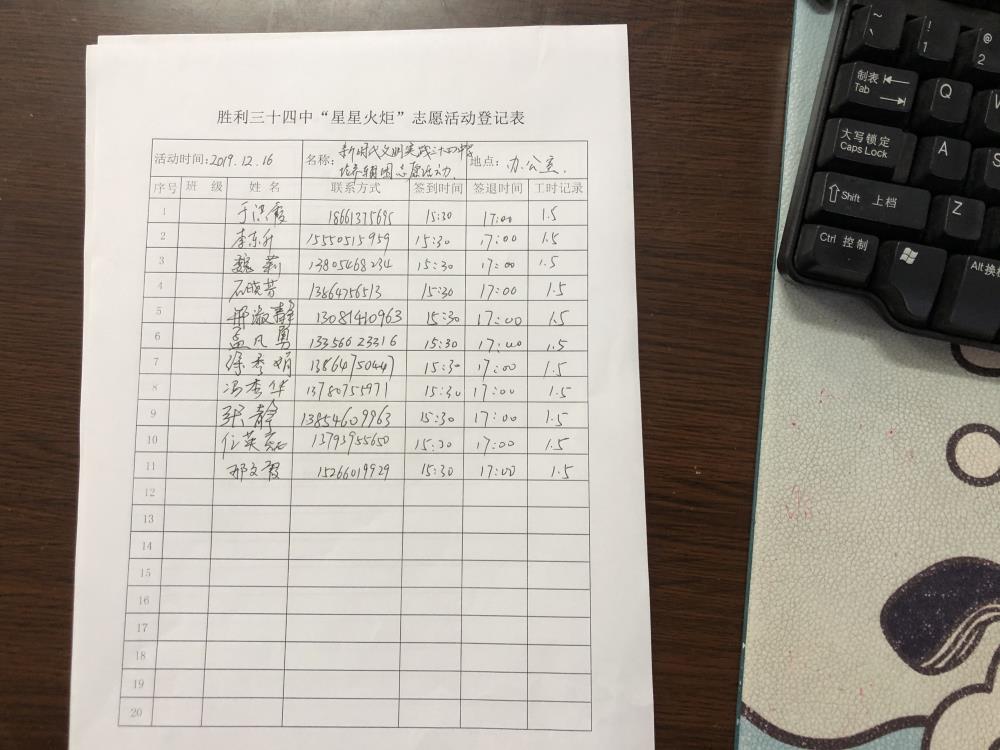 胜利三十四中“星星火炬”志愿活动登记表
活动时间:2019.12.16 名称: 新时代文明实践三十四中 志愿活动 地点: 办公室
序号 班 级 姓 名 联系方式 签到时间 签退时间 工时记录
1 于洪霞 18661375695 15:30 17:00 1.5
2 李东升 15550515959 15:30 17:00 1.5
3 魏莉 13805468234 15:30 17:00 1.5
4 石晓芳 13864756513 15:30 17:00 1.5
5 淑静 13081410963 15:30 17:00 1.5
6 孟凡勇 13356623316 15:30 17:00 1.5
7 徐秀娟 13864750447 15:30 17:00 1.5
8 冯秀华 13780755971 15:30 17:00 1.5
9 张静 13854609963 15:30 17:00 1.5
10 任英 13793955650 15:30 17:00 1.5
11 邢文霞 15266019929 15:30 17:00 1.5
12
13
14
15
16
17
18
19
20
~ 、
! 1
@ 2
制表 Tab
Q
W
大写锁定 Caps Lock
A
S
Shift 上档
Z
Ctrl 控制
Alt 换